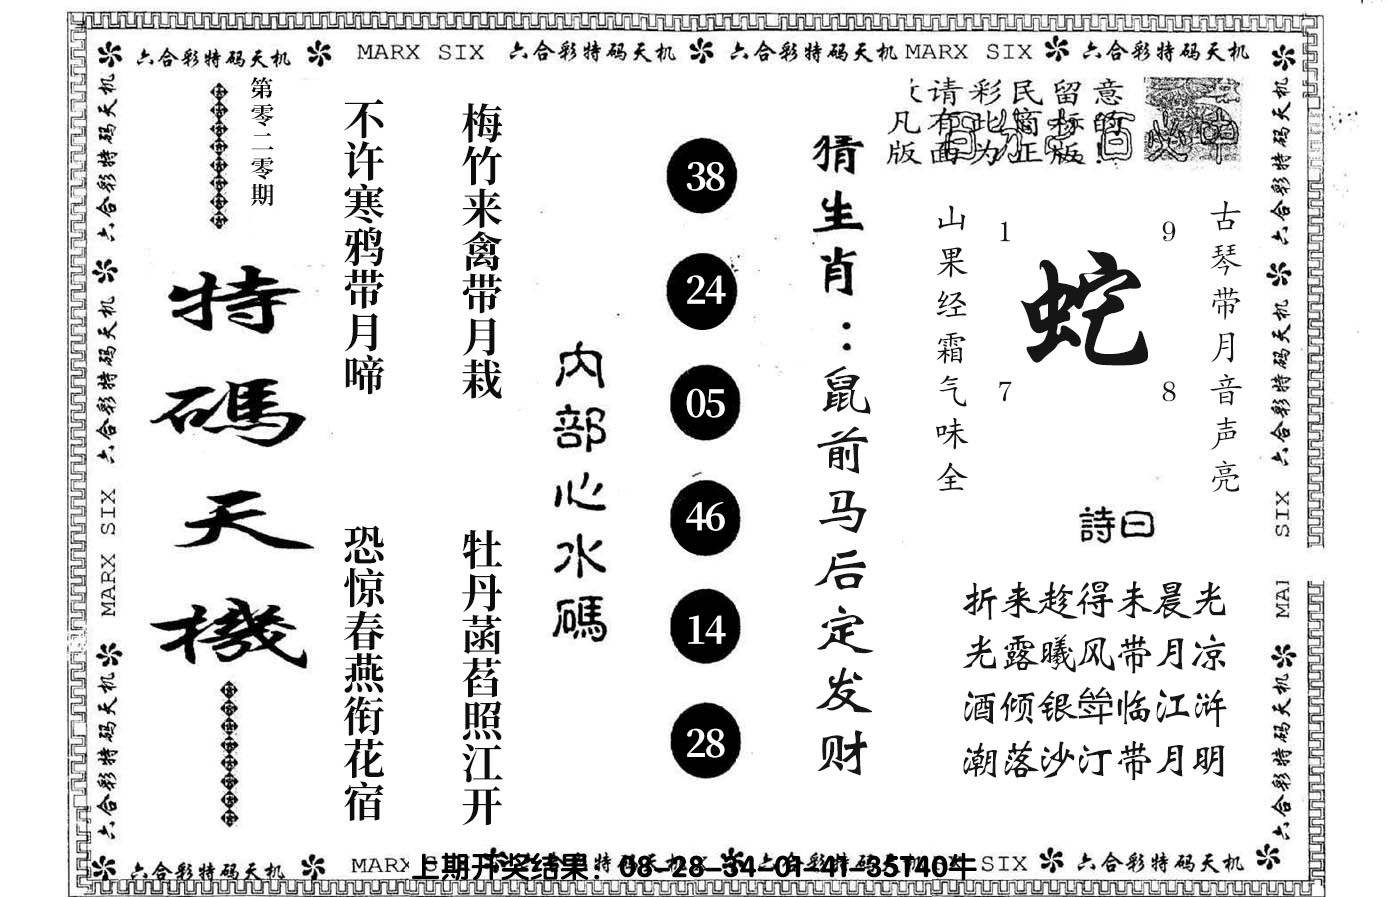 六合彩特码天机 MARX SIX 六合彩特码天机 六合彩特码天机 MARX SIX 六合彩特码天机
第零二零期
特碼天機
不许寒鸦带月啼
恐惊春燕衔花宿
梅竹来禽带月栽
牡丹菡萏照江开
内部心水碼
38
24
05
46
14
28
猜生肖：鼠前马后定发财
请彩民留意
凡有此窗标的
版面为正版!
古琴带月音声亮
山果经霜气味全
1
9
蛇
7
8
詩曰
折来趁得未晨光
光露曦风带月凉
酒倾银斝临江浒
潮落沙汀带月明
六合彩特码天机 MARX SIX 六合彩特码天机
六合彩特码天机 六合彩特码天机 SIX
六合彩特码天机 MARX 六合彩特码天机 SIX 六合彩特码天机
上期开奖结果：08-28-34-01-41-35T40牛